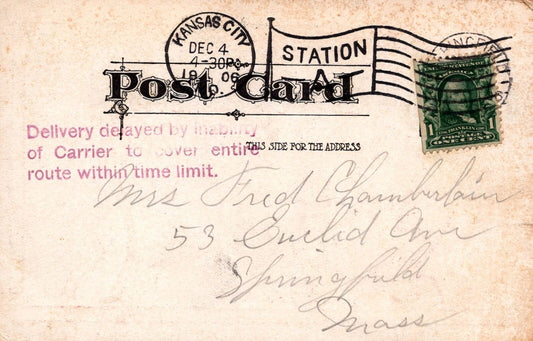 KANSAS CITY
DEC 4
4-30P
19 06
STATION
A
Post Card
THIS SIDE FOR THE ADDRESS
1
FRANKLIN
Delivery delayed by inability
of Carrier to cover entire
route within time limit.
Mrs Fred Chamberlain
53 Euclid Ave
Springfield
Mass